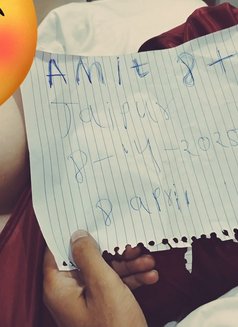 AMit 8 +
Jaipur
8-14-2025
8 april